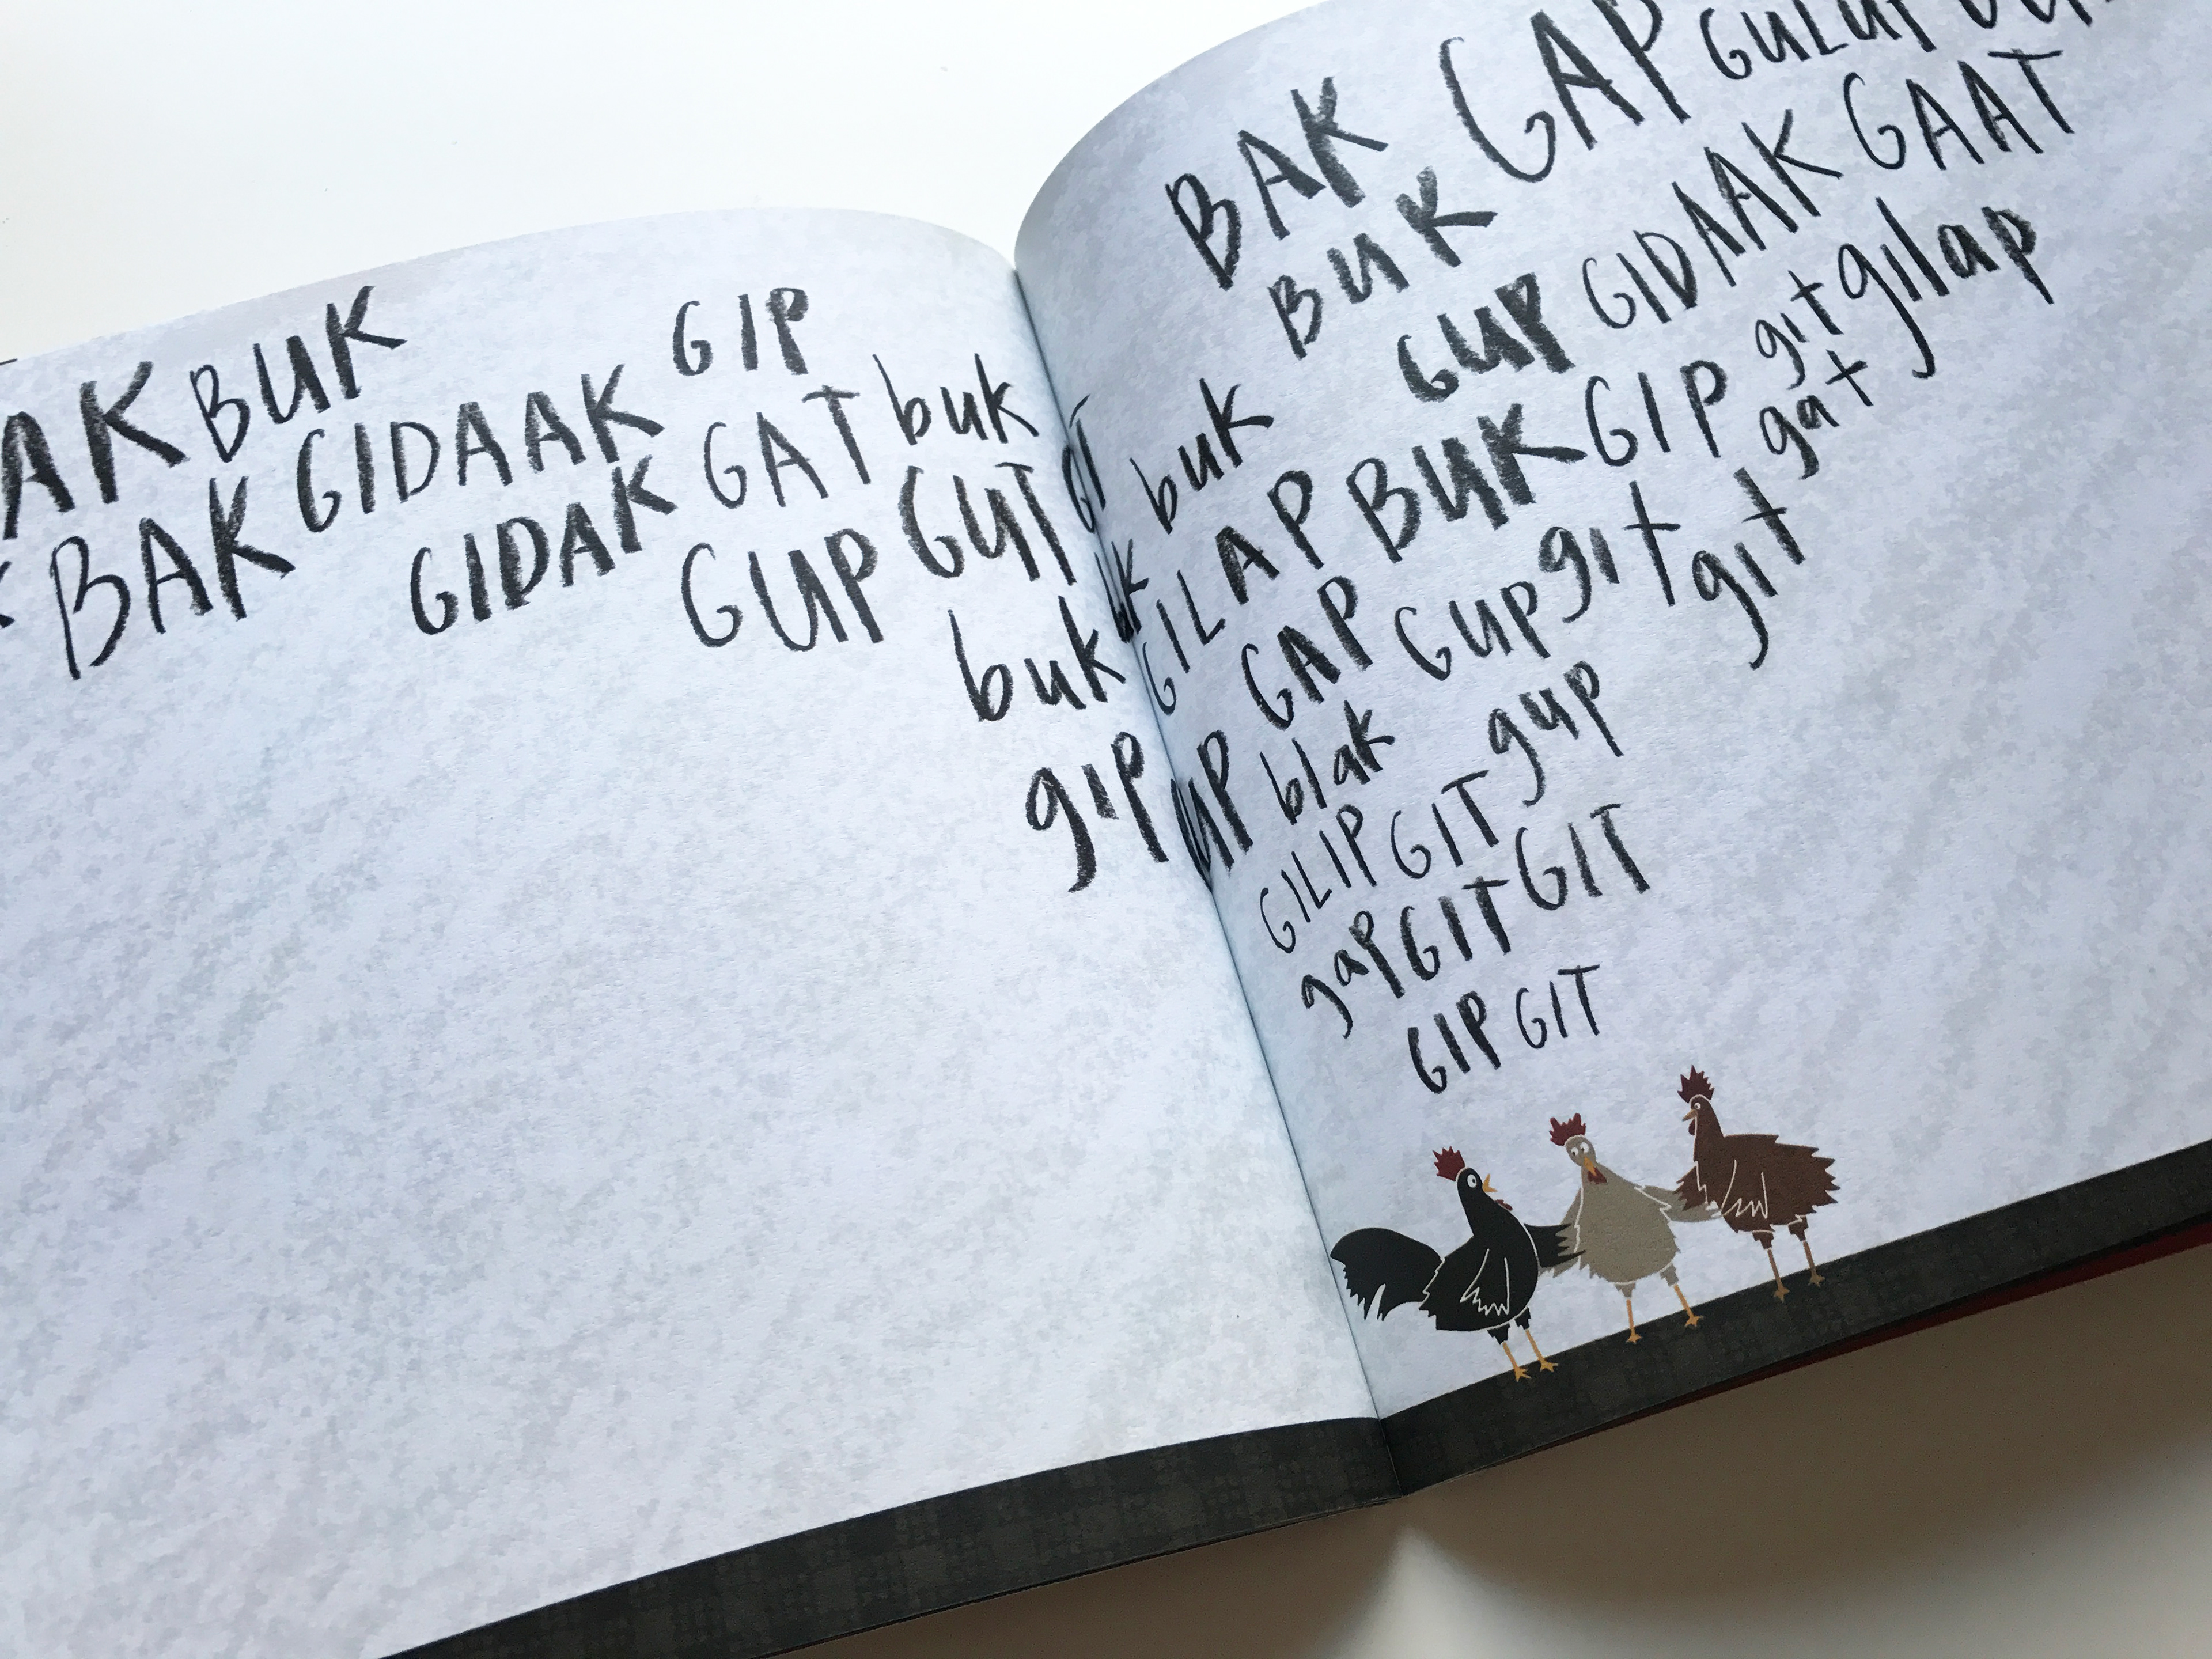 BUK
GIP
BAK GIDAAK
GIDAK GAT buk
GUP GUT
buk
gip
BAK GAP
BUK
GUP GIDAAK GAAT
buk
GILAP BUK GIP git gilap
gat
GAP GUP git git
blak
GILIP GIT gup
gap GIT GIT
GIP GIT